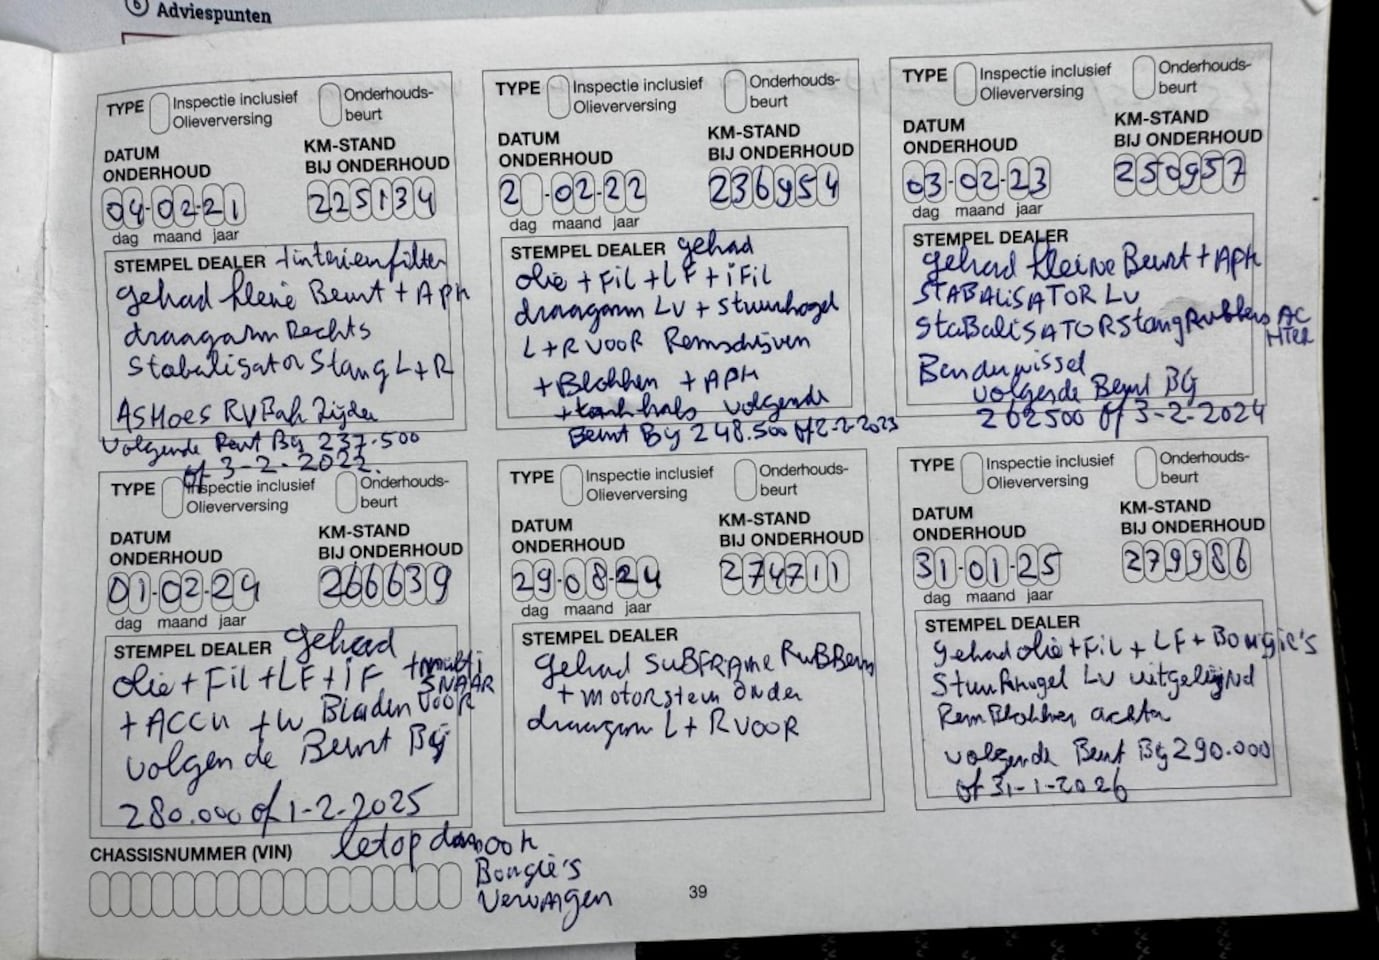 6 Adviespunten
TYPE Inspectie inclusief Olieverversing Onderhouds-beurt
DATUM ONDERHOUD KM-STAND BIJ ONDERHOUD
04-02-21 225134
dag maand jaar
STEMPEL DEALER +interieurfilter
gehad kleine Beurt + APK
draagarm Rechts
Stabalisator Stang L+R
ASHoes RV Bak Zijde
Volgende Beurt Bij 237.500
of 3-2-2022.
TYPE Inspectie inclusief Olieverversing Onderhouds-beurt
DATUM ONDERHOUD KM-STAND BIJ ONDERHOUD
2 -02-22 236954
dag maand jaar
STEMPEL DEALER gehad
olie + Fil + LF + iFil
draagarm LV + Stuurkogel
L+R VOOR Remschijven
+Blokken + APK
+tankhals volgende
Beurt Bij 248.500 of 2-2-2023
TYPE Inspectie inclusief Olieverversing Onderhouds-beurt
DATUM ONDERHOUD KM-STAND BIJ ONDERHOUD
03-02-23 250957
dag maand jaar
STEMPEL DEALER
gehad kleine Beurt + APK
STABALiSATOR LV
StaBaliSATORStangRubbers ACHTER
Bandenwissel
volgende Beurt Bij
262500 of 3-2-2024
TYPE Inspectie inclusief Olieverversing Onderhouds-beurt
DATUM ONDERHOUD KM-STAND BIJ ONDERHOUD
01-02-24 266639
dag maand jaar
STEMPEL DEALER gehad
olie + Fil + LF + iF + multi SNAAR
+ ACCU + W Bladen VOOR
volgende Beurt Bij
280.000 of 1-2-2025
letop dan ook
Bougie's
Vervangen
TYPE Inspectie inclusief Olieverversing Onderhouds-beurt
DATUM ONDERHOUD KM-STAND BIJ ONDERHOUD
29-08-24 274711
dag maand jaar
STEMPEL DEALER
Gehad SUBFRAme RuBBers
+ motorsteun onder
draagarm L + R VOOR
TYPE Inspectie inclusief Olieverversing Onderhouds-beurt
DATUM ONDERHOUD KM-STAND BIJ ONDERHOUD
31-01-25 279986
dag maand jaar
STEMPEL DEALER
gehad olie + Fil + LF + Bougie's
Stuurkogel LV uitgelijnd
RemBlokken achter
volgende Beurt Bij 290.000
of 31-1-2026
CHASSISNUMMER (VIN)
39